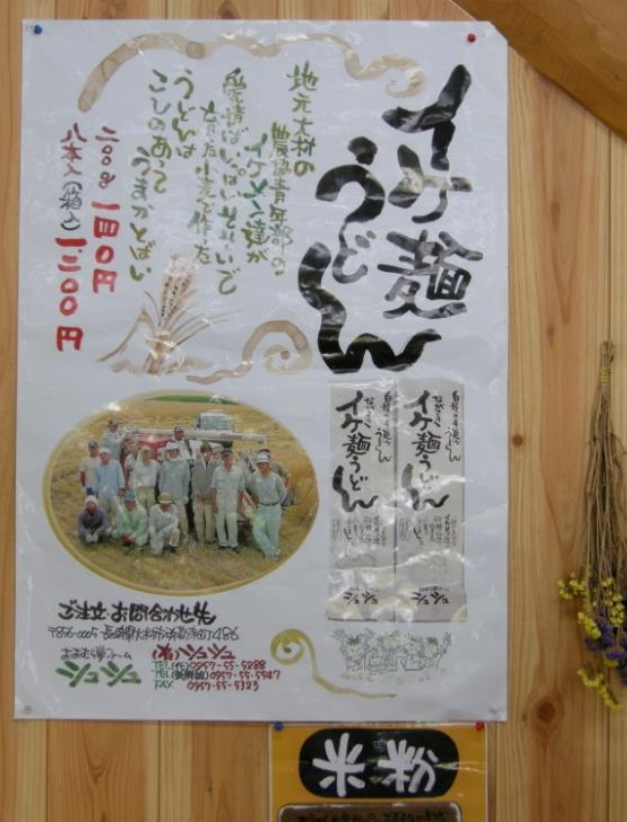 イケ麺
うどん
地元大村の
農協青年部の
イケメン達が
愛情ばいっぱいそそいで
育てた小麦で作った
うどんは
こしのあって
うまかとばい
二〇〇g 一四〇円
八本入(箱入)一、三〇〇円
イケ麺うどん
イケ麺うどん
ご注文・お問合わせ先
おおむら夢ファーム
シュシュ
(有)シュシュ
TEL(代)0957-55-5288
0957-55-5547
FAX 0957-55-5323
米粉